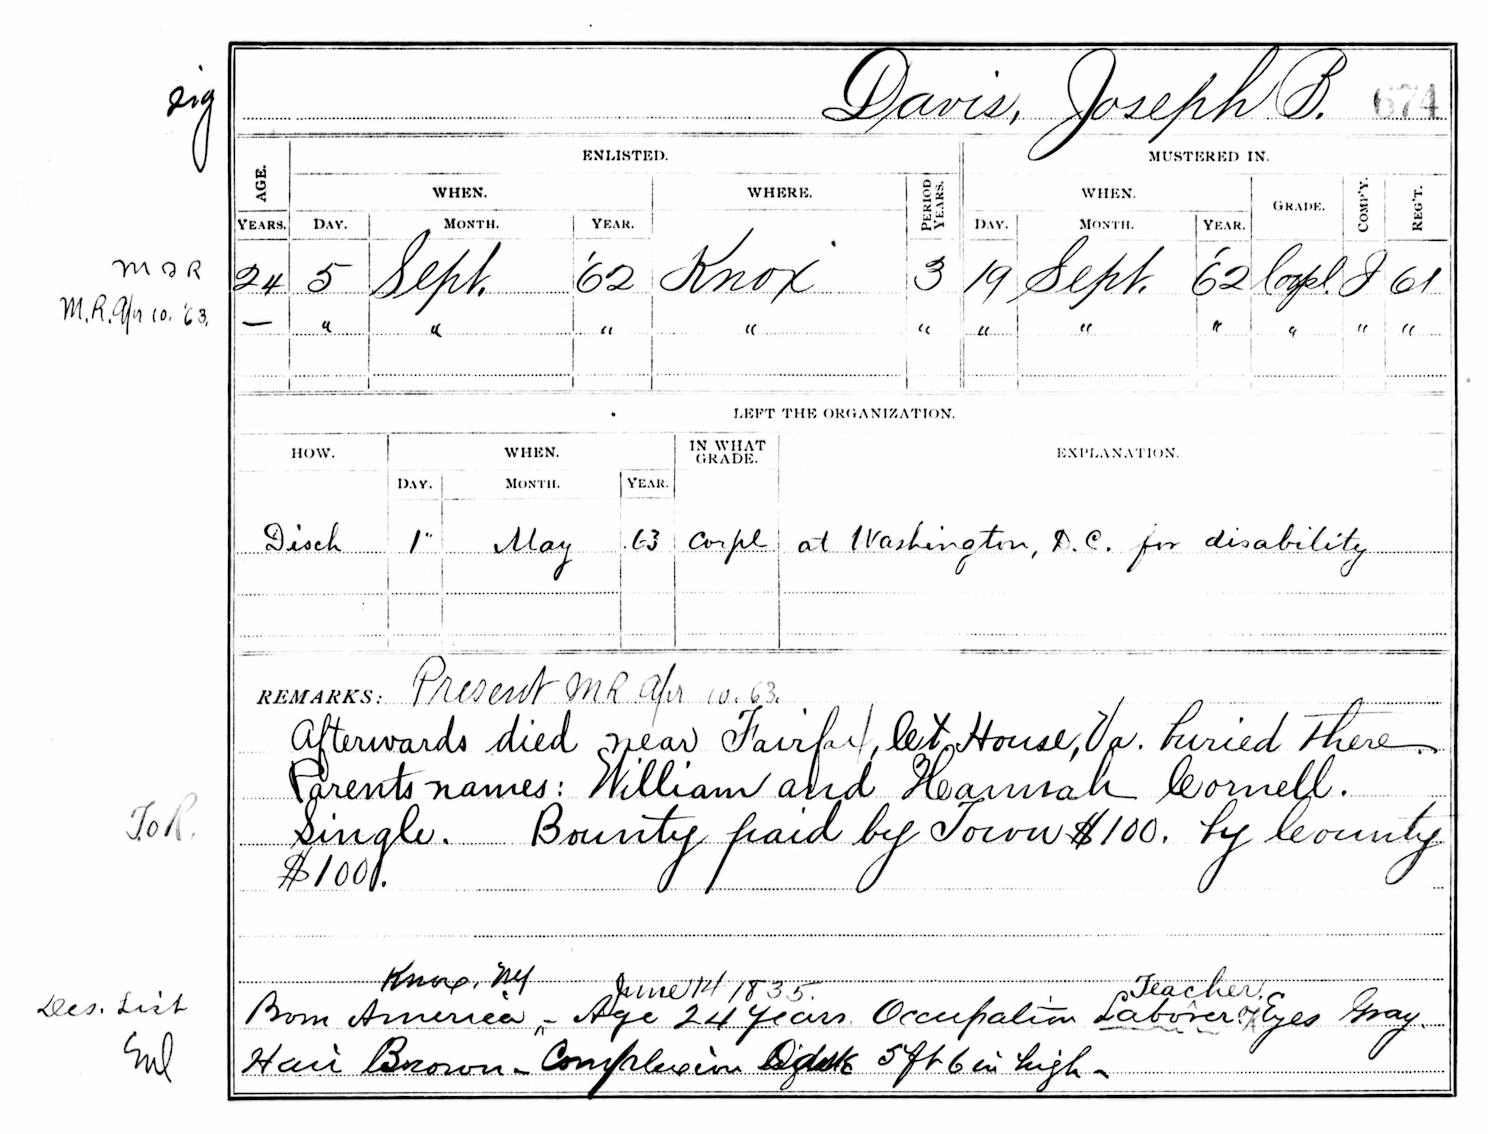 sig
Davis, Joseph B. 674
AGE. ENLISTED. MUSTERED IN.
WHEN. WHERE. PERIOD YEARS. WHEN. GRADE. COMP'Y. REG'T.
YEARS. DAY. MONTH. YEAR. DAY. MONTH. YEAR.
M D R 24 5 Sept. '62 Knox 3 19 Sept. '62 Corpl. I 61
M.R. Apr 10. '63. — " " " " " " " " " " "
LEFT THE ORGANIZATION.
HOW. WHEN. IN WHAT GRADE. EXPLANATION.
DAY. MONTH. YEAR.
Disch 1" May 63 Corpl at Washington, D.C. for disability
REMARKS: Present M R Apr 10. 63.
Afterwards died near Fairfax, Ct House, Va. buried there
Parents names: William and Hannah Cornell.
T.o R. Single. Bounty paid by Town $100. by County
$100.
Knox, NY June 14 1835. Teacher
Des. List Born America - Age 24 years Occupation Laborer Eyes Gray.
Hair Brown - Complexion 5 ft 6 in high -